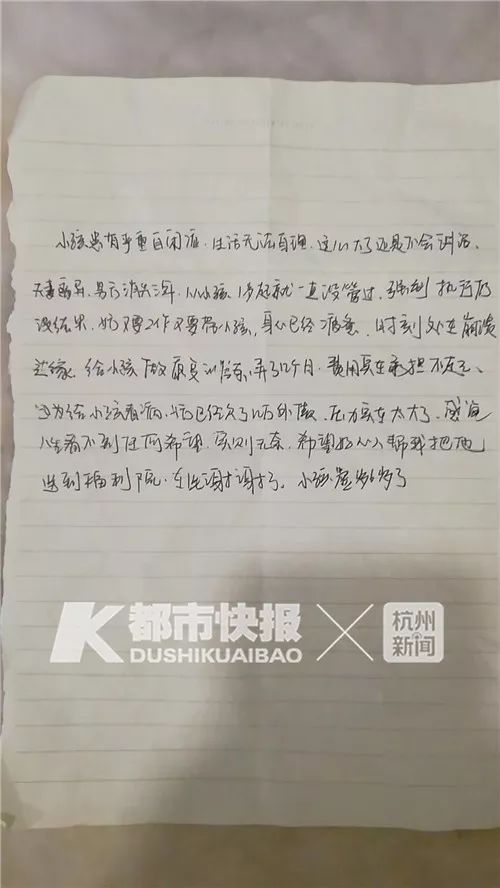 小孩患有严重自闭症，生活无法自理，这么大了还是不会讲话。
夫妻离异，男方消失3年，从小孩1岁起就一直没管过，强制执行仍
没结果，妈又要工作又要带小孩，身心已经疲惫，时刻处在崩溃
边缘。给小孩做康复训练，弄了几个月，费用实在承担不起了、
为给小孩看病，已经欠了几万外债，压力实在太大了，感觉
人生看不到任何希望，实则无奈，希望好心人帮我把他
送到福利院，在此谢谢谢了。小孩虚岁6岁了
都市快报
DUSHIKUAIBAO
杭州
新闻